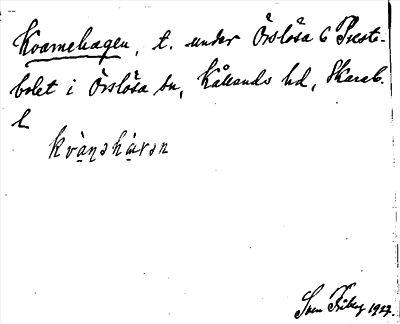 Kvarnehagen, t. under Örslösa 6 Prest-
bolet i Örslösa sn, Kållands hd, Skarab.
l
kvàṇəhàvən
Sven Friberg 1927.